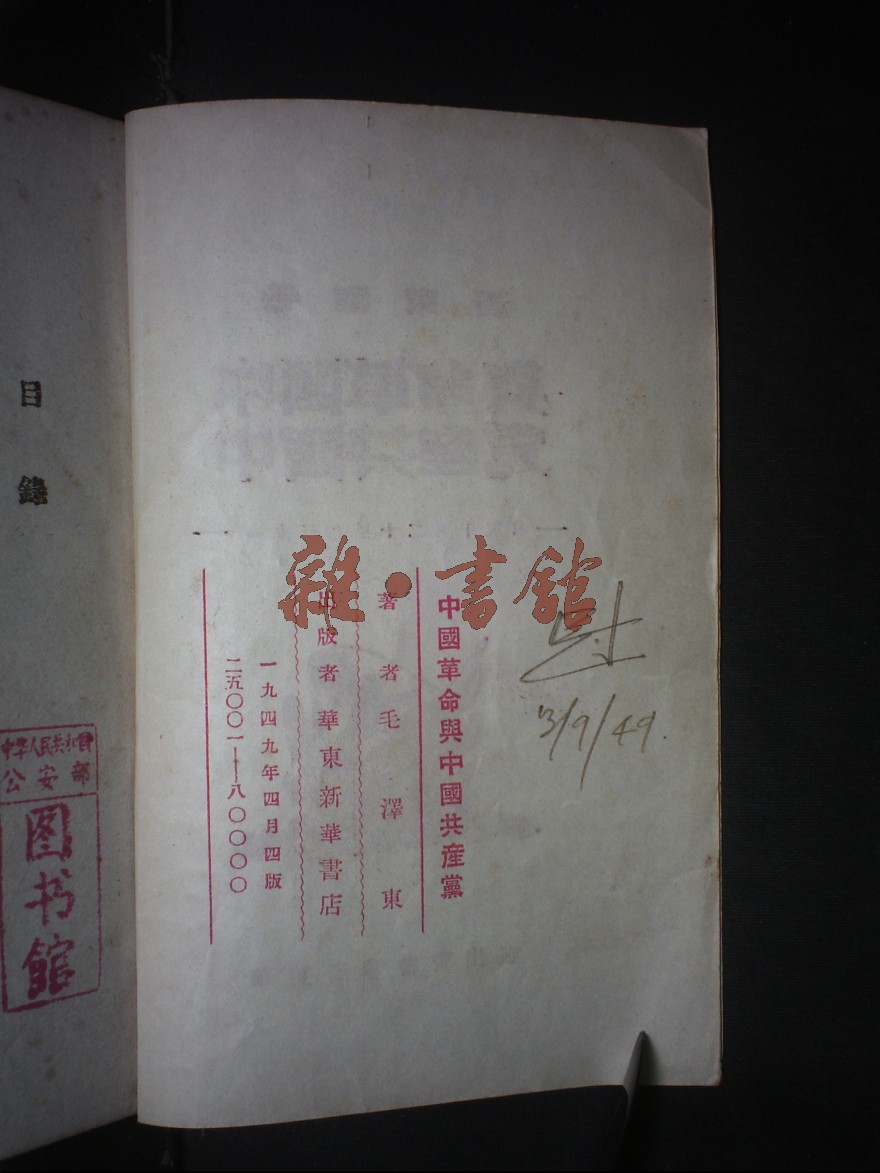 中國革命與中國共産黨
著者毛澤東
出版者華東新華書店
一九四九年四月四版
二五〇〇一——八〇〇〇〇
雜·書館
3/9/49.
目錄
中华人民共和国
公安部
图书馆